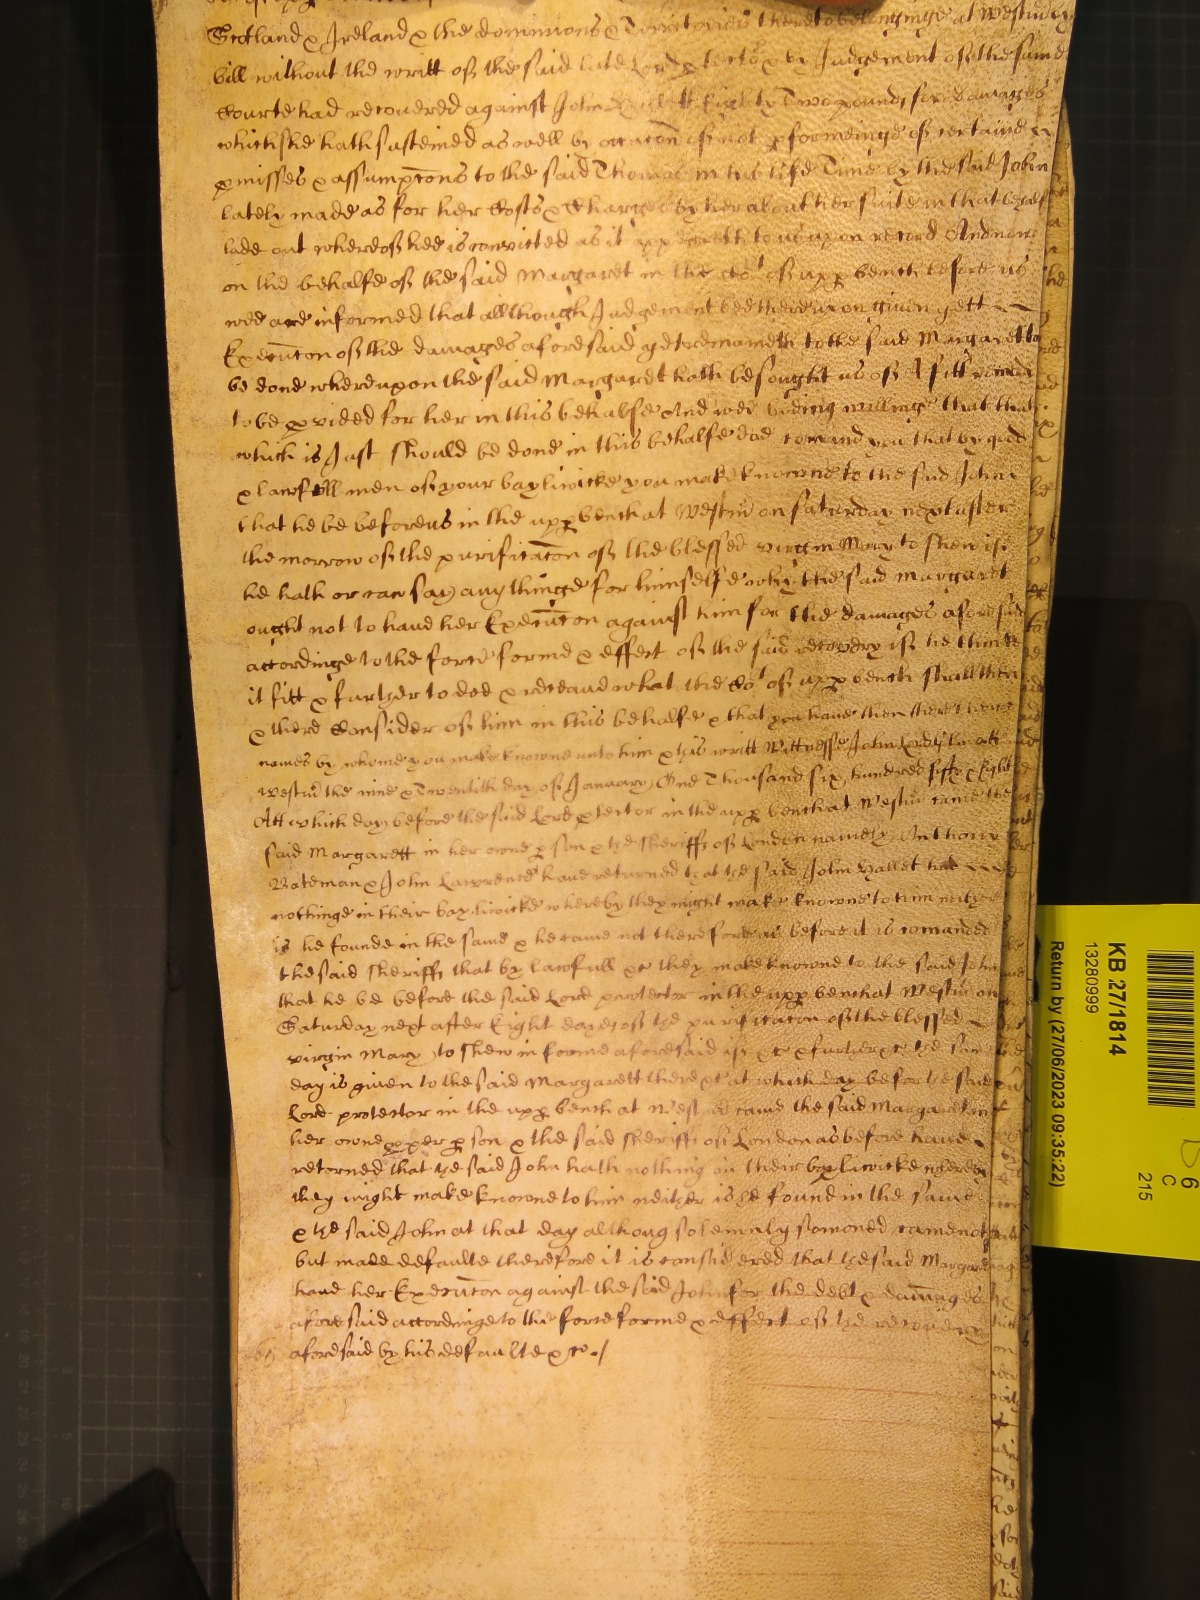 Scotland & Ireland & the dominions & Territories thereto belonginge at Westm̃ by
bill without the writt of the said late Lord ꝑtector & by Judgement of the same
Courte had recouered against John Eighty Two pounds for damages
which she hath susteined as well by occac̃on of not ꝑformeinge of certaine
ꝑmisses & assumpc̃ons to the said Thomas in his life Time by the said John
lately made as for her Costs & Charges by her about her suite in that behalf
laide out whereof hee is convicted as it appeareth to us upon record And now
on the behalfe of the said Margaret in the Cot of upꝑ bench before us
wee are informed that allthough Judgement bee thereupon given yett
Execuc̃on of the damages aforesaid yet remaineth to the said Margarett to
be done whereupon the said Margaret hath besought us of A fitt
to be ꝓvided for her in this behalfe And wee beeing willinge that that
which is Just should be done in this behalfe doe com̃and you that by good
& lawfull men of your bayliwicke you make knowne to the said John
that he be before us in the upꝑ bench at Westm̃ on Saturday next after
the morrow of the purificac̃on of the blessed virgin Mary to shew if
he hath or can say any thinge for himselfe why the said Margaret
ought not to haue her Execuc̃on against him for the damages aforesaid
accordinge to the force forme & effect of the said recovery if he thinke
it fitt & further to doe & receaue what the Cot of upꝑ bench shall then
& there Consider of him in this behalfe & that you haue then there the
names by whome you make knowne unto him & this writt Wittnesse John att
Westm̃ the nine & Twentith day of January One Thousand six hundred fifty & Eight
Att which day before the said Lord ꝓtector in the upꝑ bench at Westm̃ came the
said Margarett in her owne ꝑson & the Sheriffs of London namely Anthony
Bateman & John Lawrence haue returned that the said John Hallet hath
nothinge in their bayliwicke whereby they might make knowne to him neither
is he founde in the same & he came not therefore as before it is com̃anded
the said Sheriffs that by lawfull &c they make knowne to the said John
that he be before the said Lord protector in the upꝑ bench at Westm̃ on
Saturday next after Eight dayes of the purificac̃on of the blessed
virgin Mary to shew in forme aforesaid if &c & further &c the same
day is given to the said Margarett there &c at which day before the said
Lord protector in the upꝑ bench at Westm̃ came the said Margarett in
her owne ꝓper ꝑson & the said Sheriffs of London as before haue
retorned that the said John hath nothing in their bayliwicke whereby
they might make knowne to him neither is he found in the same
& the said John at that day althoug solemnly som̃oned came not
but made defaulte therefore it is considered that the said Margaret
haue her Execuc̃on against the said John for the debt & dam̃ages
aforesaid accordinge to the force forme & effect of the recovery
aforesaid by his defaulte &c./
KB 27/1814
13280999
Return by (27/06/2023 09:35:22)
6
C
215